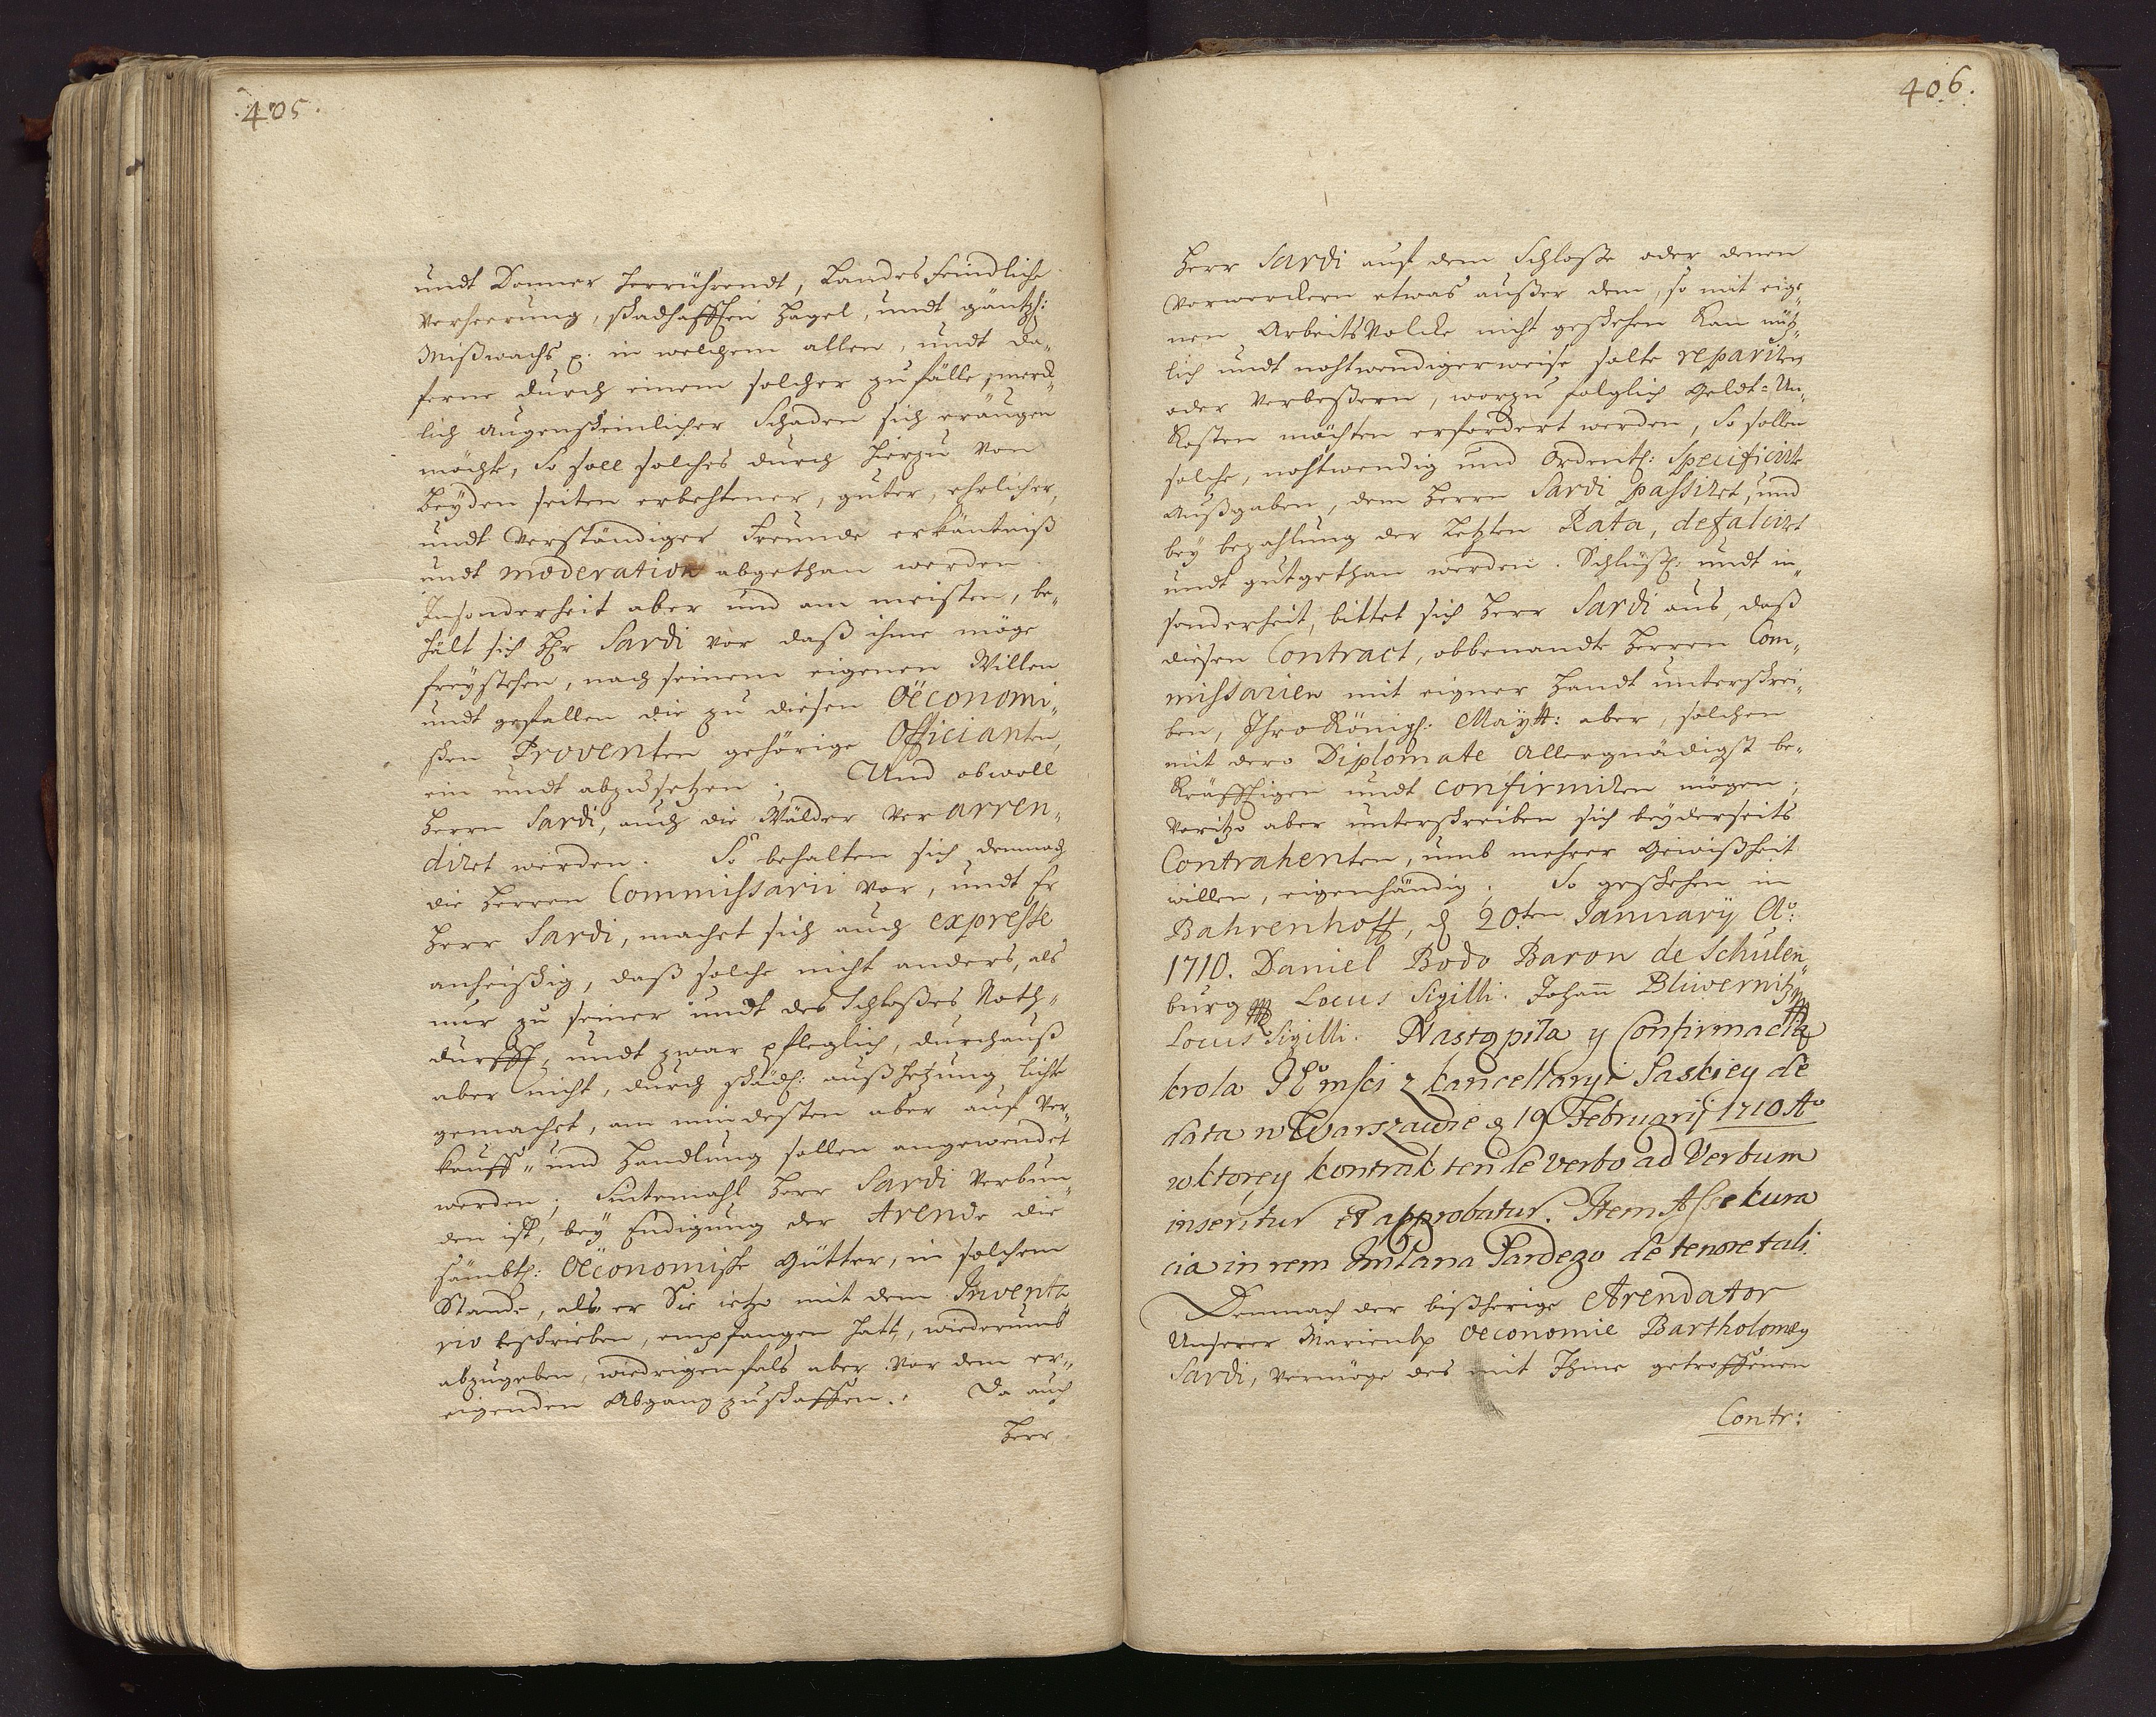 405.
undt Donner herrührendt, Landes Feindliche
Verheerung, schadhafften Hagel, undt gäntzl:
Mißwachs p. in welchem allen, undt da„
ferne durch einem solcher zufälle, merck„
lich augenscheinlicher Schaden sich eräugen
möchte, So soll solches durch hierzu von
Beyden seiten erbehtener, guter, ehrlicher,
undt Verständiger Freunde erkäntniß
undt moderation abgethan werden.
Insonderheit aber und am meisten, be„
hält sich Hr Sardi vor daß ihme möge
freystehen, nach seinem eigenen Willen
undt gefallen die zu diesen Oeconomi„
schen Proventen gehörige Officianten,
ein undt abzusetzen. Und obwoll
Herrn Sardi, auch die Wälder Ver arren„
diret werden. So behalten sich demnach
die Herren Commissarii vor, undt Er
Herr Sardi, machet sich auch expresse
anheischig, daß solche nicht anders, als
nur zu seiner undt des Schloßes Noth„
durfft, undt zwar pfleglich, durchauß
aber nicht, durch schädl: außhetzung lichte
gemachet, am mindesten aber auf Ver„
kauff„ und Handlung sollen angewendet
werden; Sintemahl Herr Sardi Verbun„
den ist, bey Endigung der Arende die
sämbtl: Oeconomische Gütter, in solchem
Stande, als er Sie ietzo mit dem Inventa„
rio beschrieben, empfangen hatt, wiederumb
abzugeben, wiedrigenfals aber vor dem er„
eigenden Abgang zuschaffen. Da auch
Herr
406.
Herr Sardi auf dem Schloße oder denen
Vorwerckern etwas außer dem, so mit eige„
nen ArbeitsVolcke nicht geschehen kan nütz„
lich undt nohtwendigerweise solte repariren
oder Verbeßern, worzu folglich Geldt=Un„
kosten möchten erfordert werden, So sollen
solche, nohtwendig und Ordentl: Specificirte
Außgaben, dem Herrn Sardi passiret, und
bey bezahlung der Letzten Rata, defalciret
undt gutgethan werden. Schlüßl: undt in„
sonderheit, bittet sich Herr Sardi aus, daß
diesen Contract, obbenandte Herren Com„
missarien mit eigner Handt unterschrei„
ben, Ihro Königl: Maytt: aber, solchen
mit dero Diplomate Allergnädigst be„
kräfftigen undt confirmiren mögen;
Voritzo aber unterschreiben sich beyderseits
Contrahenten, umb mehrer Gewißheit
willen, eigenhändig. So geschehen in
Bahrenhoff, d 20ten January Ao:
1710. Daniel Bodo Baron de Schulen„
burg Locus Sigilli. Johann Bliwernitz
Locus Sigilli. Nastąpiła y Confirmacia
krola JEomsci z kancellaryi Saskiey de
data w Warszawie d 19 Februarij 1710 Ao
w ktorey kontrakt ten de verbo ad Verbum
inseritur et approbatur. Item Assekura
cia in rem Imć Pana Pardego de tenore tali.
Demnach der bißherige Arendator
Unserer Marienb. Oeconomie Bartholomey
Sardi, vermöge des mit Ihme getroffenen
Contr: